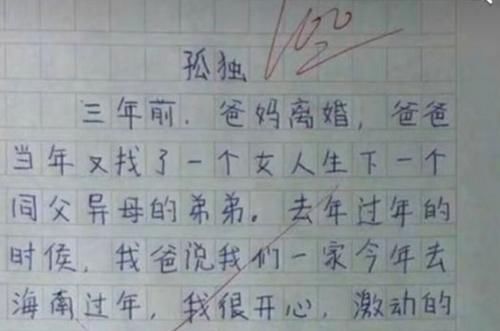 100
孤独
三年前，爸妈离婚，爸爸
当年又找了一个女人生下一个
同父异母的弟弟。去年过年的
时候，我爸说我们一家今年去
海南过年，我很开心，激动的